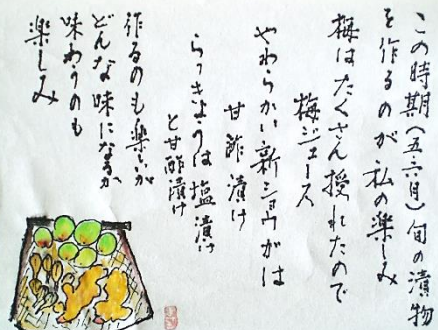 この時期(五六月)旬の漬物
を作るのが私の楽しみ
梅はたくさん授れたので
梅ジュース
やわらかい新ショウガは
甘酢漬け
らっきょうは塩漬け
と甘酢漬け
作るのも楽しいが
どんな味になるか
味わうのも
楽しみ